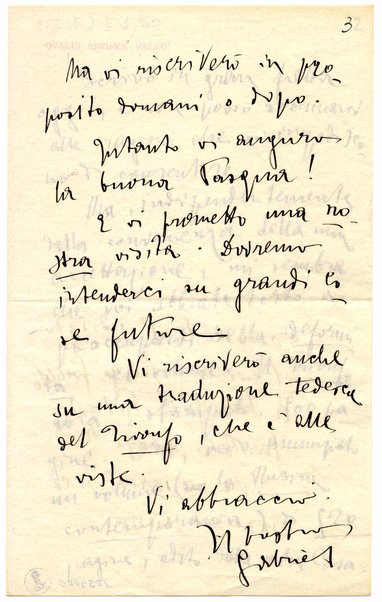 32
Ma vi riscriverò in pro-
posito domani o dopo.
Intanto vi auguro
la buona Pasqua!
E vi prometto una no-
stra visita. Dovremo
intenderci su grandi co-
se future.
Vi riscriverò anche
su una traduzione tedesca
del Trionfo, che è alle
viste.
Vi abbraccio.
Il vostro
Gabriel